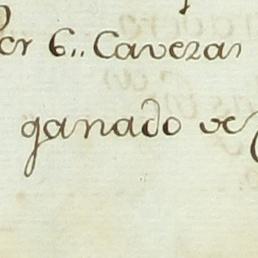 por 6,, Cavezas
ganado de